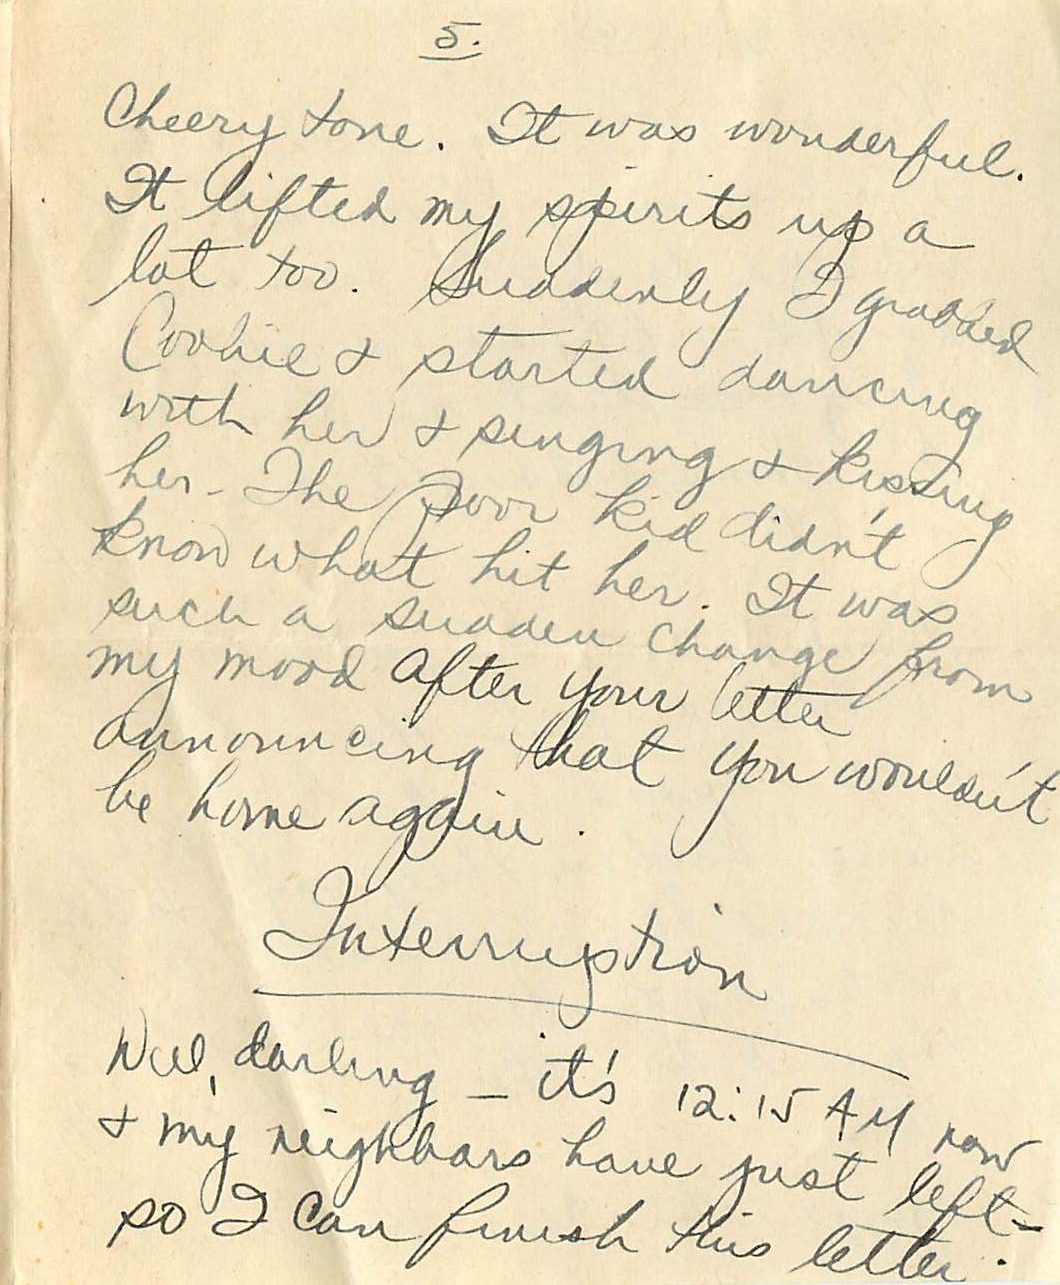 5.
Cheery tone. It was wonderful.
It lifted my spirits up a
lot too. Suddenly I grabbed
Cookie & started dancing
with her & singing & kissing
her - The poor kid didn't
know what hit her. It was
such a sudden change from
my mood after your letter
announcing that you wouldn't
be home again.
Interruption
Well, darling - it's 12:15 AM now
& my neighbors have just left -
so I can finish this letter.